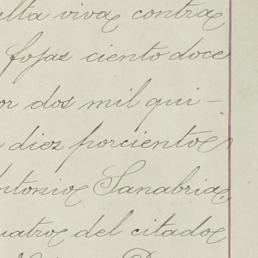 elta viva contra
fojas ciento doce
or dos mil qui-
diez porciento
ntonio Sanabria,
uatro del citado